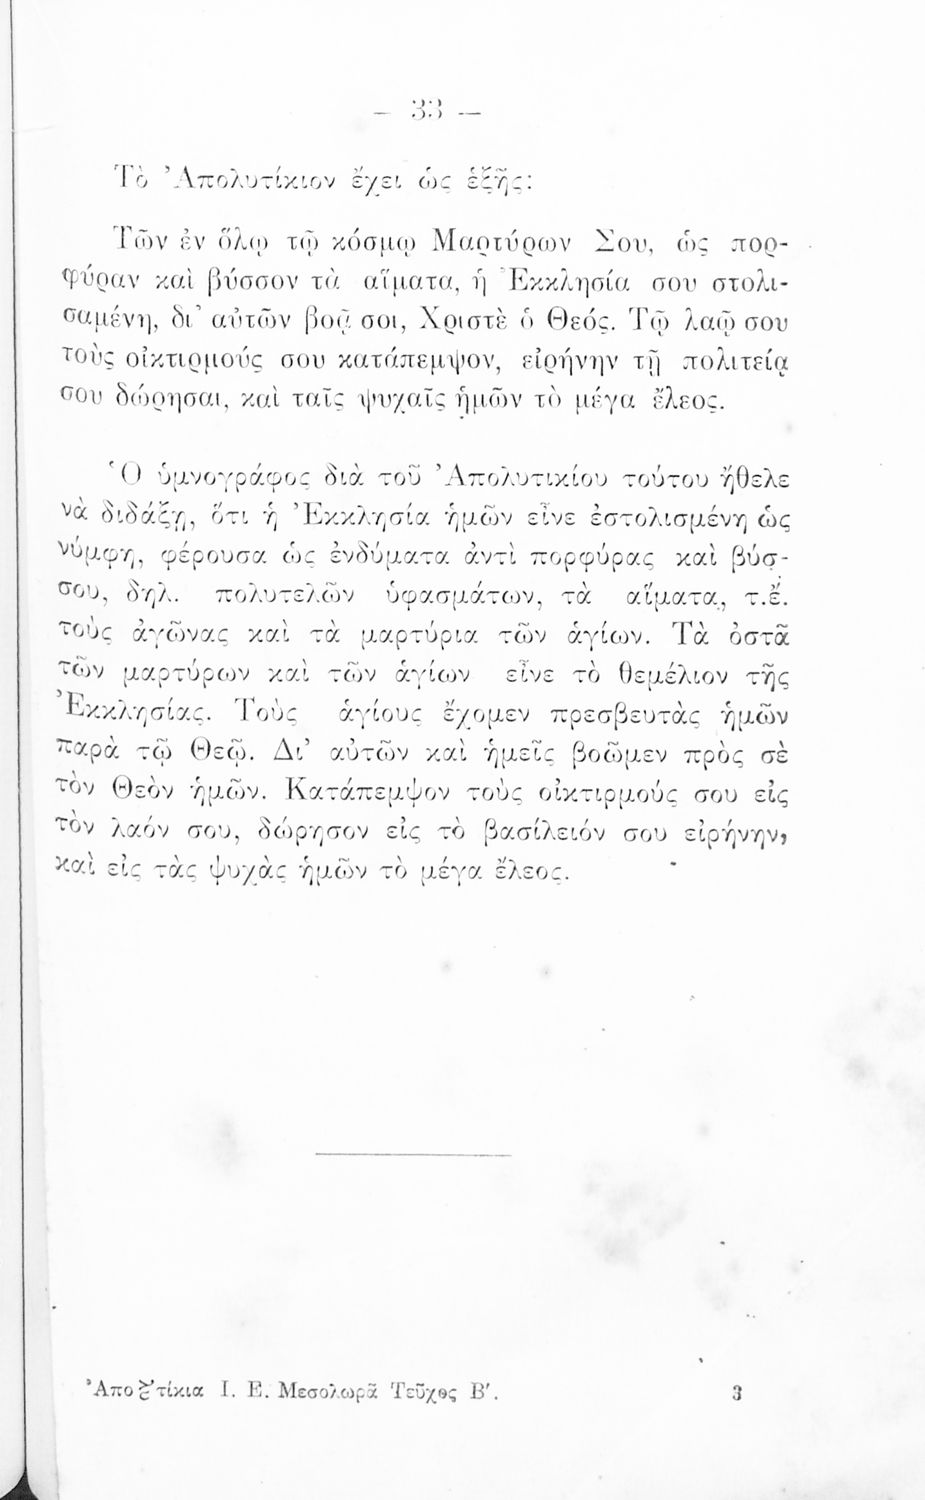 — 33 —
Τὸ Ἀπολυτίκιον ἔχει ὡς ἑξῆς:
Τῶν ἐν ὅλῳ τῷ κόσμῳ Μαρτύρων Σου, ὡς πορ-
φύραν καὶ βύσσον τὰ αἵματα, ἡ Ἐκκλησία σου στολι-
σαμένη, δι᾽ αὐτῶν βοᾷ σοι, Χριστὲ ὁ Θεός. Τῷ λαῷ σου
τοὺς οἰκτιρμούς σου κατάπεμψον, εἰρήνην τῇ πολιτείᾳ
σου δώρησαι, καὶ ταῖς ψυχαῖς ἡμῶν τὸ μέγα ἔλεος.
Ὁ ὑμνογράφος διὰ τοῦ Ἀπολυτικίου τούτου ἤθελε
νὰ διδάξῃ, ὅτι ἡ Ἐκκλησία ἡμῶν εἶνε ἐστολισμένη ὡς
νύμφη, φέρουσα ὡς ἐνδύματα ἀντὶ πορφύρας καὶ βύσ-
σου, δηλ. πολυτελῶν ὑφασμάτων, τὰ αἵματα, τ.ἔ.
τοὺς ἀγῶνας καὶ τὰ μαρτύρια τῶν ἁγίων. Τὰ ὀστᾶ
τῶν μαρτύρων καὶ τῶν ἁγίων εἶνε τὸ θεμέλιον τῆς
Ἐκκλησίας. Τοὺς ἁγίους ἔχομεν πρεσβευτὰς ἡμῶν
παρὰ τῷ Θεῷ. Δι᾽ αὐτῶν καὶ ἡμεῖς βοῶμεν πρὸς σὲ
τὸν Θεὸν ἡμῶν. Κατάπεμψον τοὺς οἰκτιρμούς σου εἰς
τὸν λαόν σου, δώρησον εἰς τὸ βασίλειόν σου εἰρήνην,
καὶ εἰς τὰς ψυχὰς ἡμῶν τὸ μέγα ἔλεος.
Ι. Ε. Μεσολωρᾶ Τεῦχος Β΄. 3